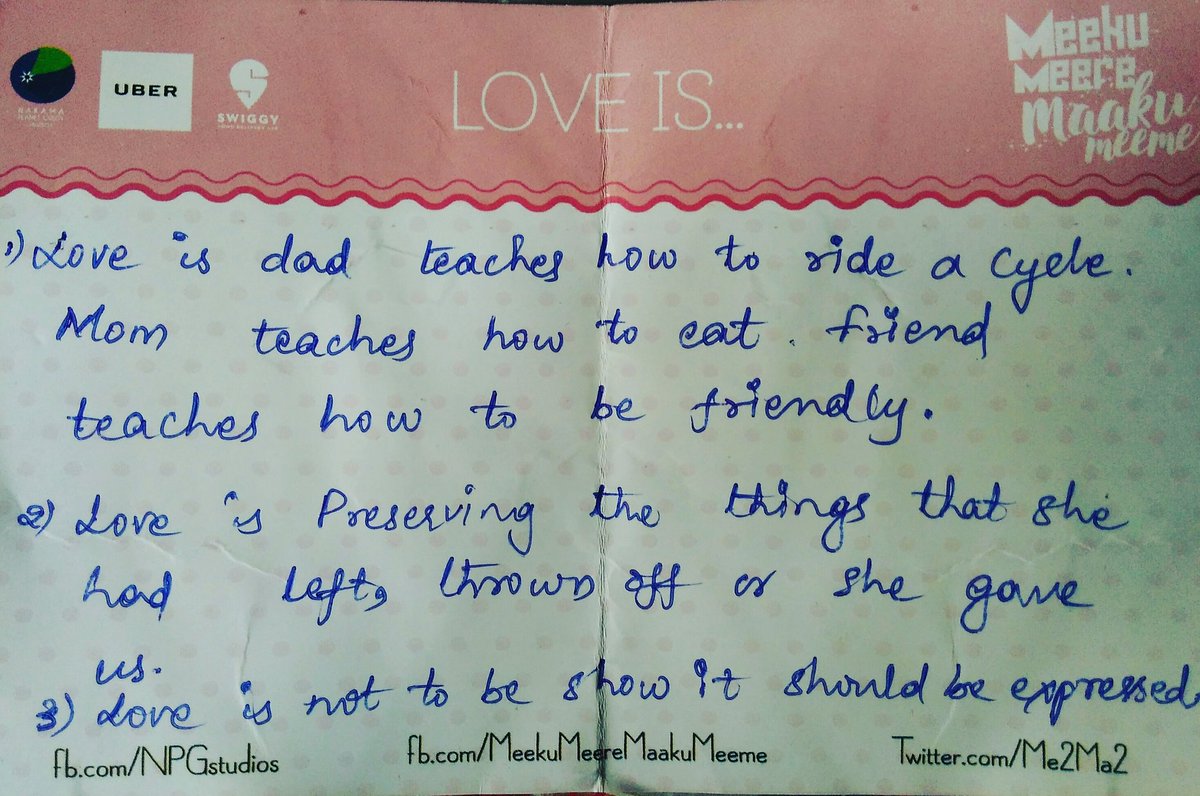 UBER
SWIGGY
LOVE IS...
Meeku
Meere
Maaku
meeme
1) Love is dad teaches how to ride a cycle.
Mom teaches how to eat. friend
teaches how to be friendly.
2) Love is Preserving the things that she
had left, thrown off or she gave
us.
3) Love is not to be show it should be expressed
fb.com/NPGstudios
fb.com/MeekuMeereMaakuMeeme
Twitter.com/Me2Ma2